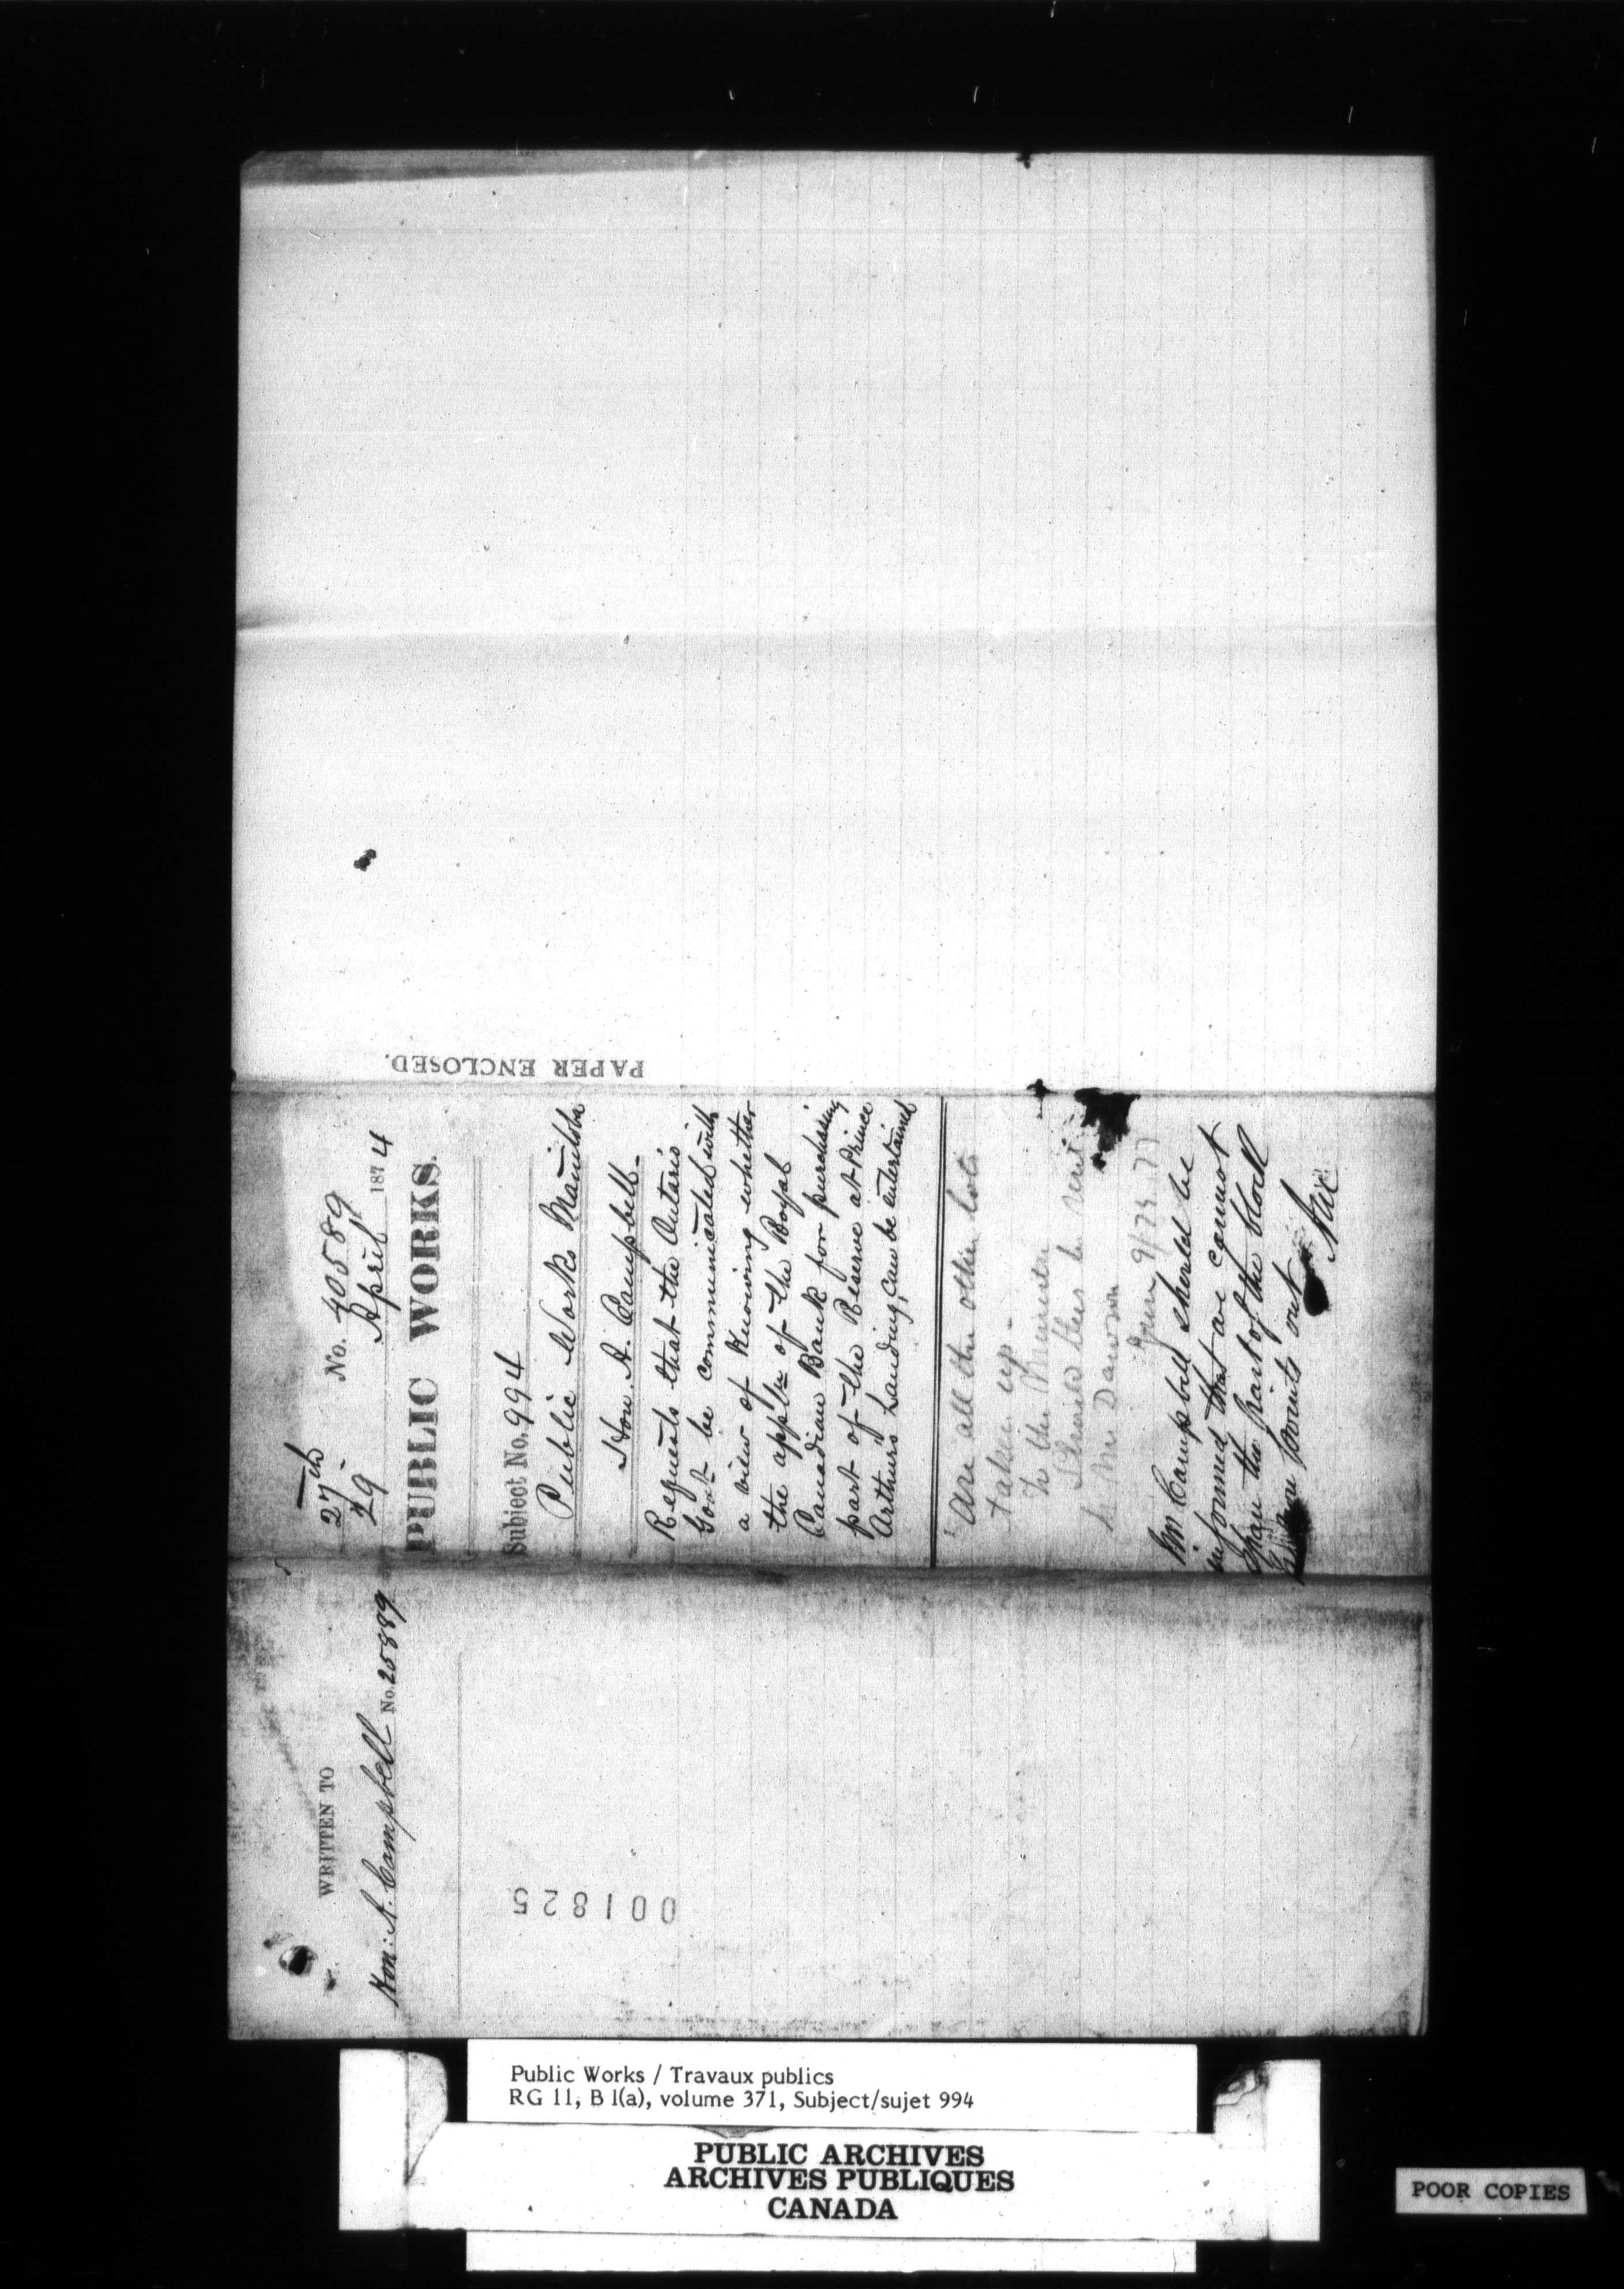 27th No. 40589
29 April 1874
PUBLIC WORKS.
Subject No. 994
Public Works Manitoba
Hon. A. Campbell.
Requests that the Ontario
Govt be communicated with
a view of knowing whether
the appltn of the Royal
Canadian Bank for purchasing
part of the Reserve at Prince
Arthur's Landing, can be entertained
Are all the other lots
taken up -
To the Minister
Should this be sent
to Mr Dawson
Mr Campbell should be
informed that we cannot
spare the part of the block
points out
PAPER ENCLOSED.
WRITTEN TO
Hon: A. Campbell No. 25889
001825
Public Works / Travaux publics
RG 11, B 1(a), volume 371, Subject/sujet 994
PUBLIC ARCHIVES
ARCHIVES PUBLIQUES
CANADA
POOR COPIES